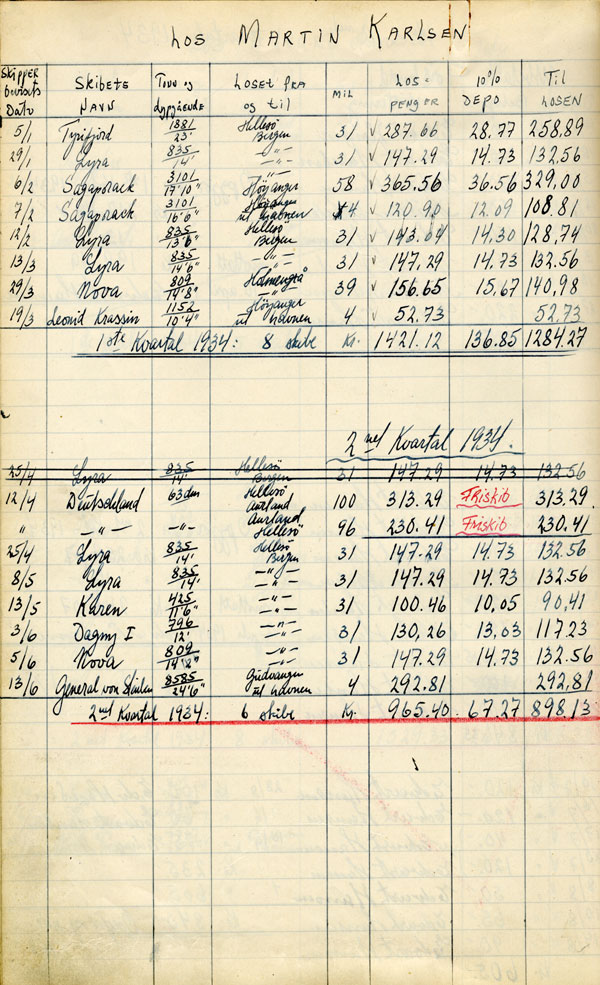 LOS MARTIN KARLSEN
SKIPPER bevisets Dato SKIBETS NAVN Tonn og dypgående LOSET FRA og til MIL LOS-PENGER 10% DEPO Til LOSEN
5/1 Tyrifjord 1881 23' Hellesö Bergen 31 √ 287.66 28,77 258,89
29/1 Lyra 835 14' -"- -"- 31 √ 147.29 14.73 132,56
6/2 Sagaporack 3101 17'10" -"- Höyanger 58 √ 365,56 36.56 329,00
7/2 Sagaporack 3101 16'6" Höyanger ut havnen 4 √ 120.90 12.09 108.81
12/2 Lyra 835 13'6" Hellesö Bergen 31 √ 143.04 14,30 128,74
13/3 Lyra 835 14'6" -"- 31 √ 147,29 14.73 132.56
29/3 Nova 809 14'8" Holmengrå 39 √ 156.65 15,67 140,98
19/3 Leonid Krassin 1152 10'4" Höyanger ut havnen 4 √ 52.73 52.73
1ste Kvartal 1934: 8 skibe Kr. 1421.12 136.85 1284.27
2net Kvartal 1934.
25/4 Lyra 835 14' Hellesö Bergen 31 147.29 14.73 132.56
12/4 Deutschland 63 dm Hellesö Aurland 100 313.29 Friskib 313.29
" -"- -"- Aurland Hellesö 96 230.41 Friskib 230.41
25/4 Lyra 835 14' Hellesö Bergen 31 147.29 14.73 132.56
8/5 Lyra 835 14' -"- 31 147.29 14.73 132.56
13/5 Karen 425 11'6" -"- 31 100.46 10,05 90,41
3/6 Dagny I 796 12' -"- 31 130,26 13,03 117.23
5/6 Nova 809 -"- 31 147.29 14.73 132.56
13/6 General von Steuben 8585 24'6" Gudvangen ut havnen 4 292.81 292,81
2net Kvartal 1934: 6 skibe Kr. 965.40 67.27 898,13